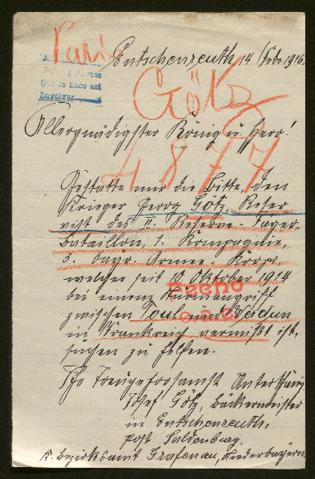 Paris
Entschenreuth 14. Febr. 1916.
Götz
Allergnädigster König u. Herr!
4877
Gestatte mir die Bitte, den
Krieger Georg Götz, Reser-
vist des II. Reserve-Jäger-
bataillon, 1. Kompagnie,
3. bayr. Armee-Korps,
welcher seit 11. Oktober 1914
Hecho
bei einem Sturmangriff
zwischen Toul und Verdun
in Frankreich vermißt ist,
suchen zu helfen.
Josef Götz, Bäckermeister
in Entschenreuth,
Post Saldenburg,
K. Bezirksamt Grafenau, Niederbayern